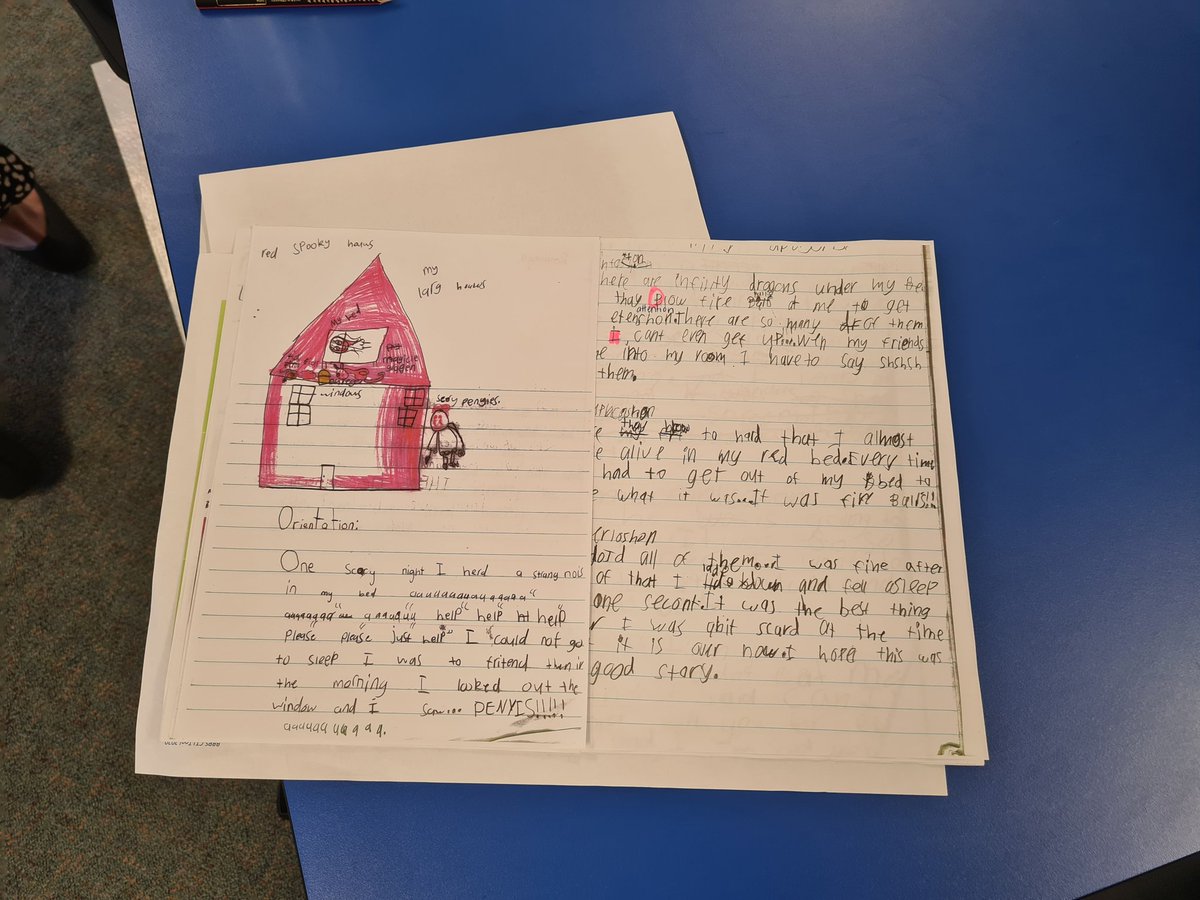 red spooky haus
my
larg haus
my bed
magicle
windows
scary penyies.
Orientation:
One scary night I herd a strang nois
in my bed auuuuaaauuyaqaaa"
help" help" help"
please please" just help" I could not go
to sleep I was to fritend then in
the morning I looked out the
window and I saw... PENYIS!!!!!
auuuauuaqaa.
here are infinity dragons under my bed
thay Blow fire Balls at me to get
attention
etenshon.There are so many of them
i cant even get up...Wen my friends
into my room I have to say shshsh
them.
thay
to hard that I almost
alive in my red bed.Every time
had to get out of my bed to
what it was...It was fire Balls!!
crioshen
all of them...I was fine after
of that I and fell asleep
one second.It was the best thing
I was abit scard at the time
it is over now.I hope this was
good story.